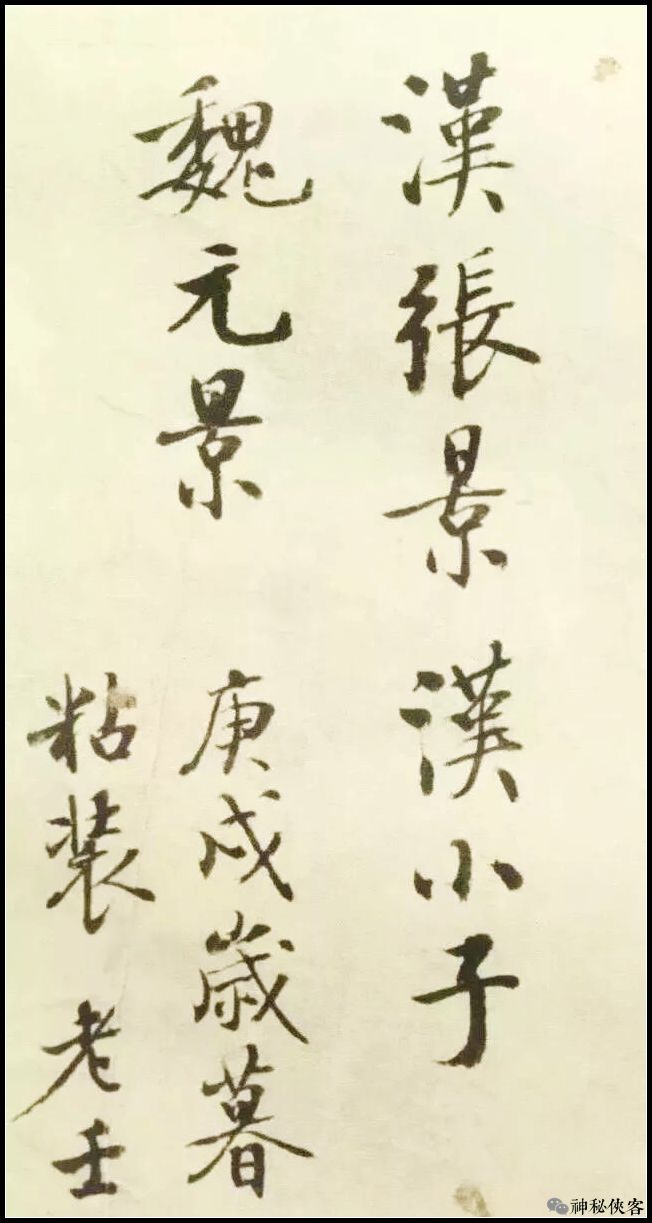 漢張景 漢小子
魏元景
庚戌歲暮
粘裝 老壬
神秘俠客